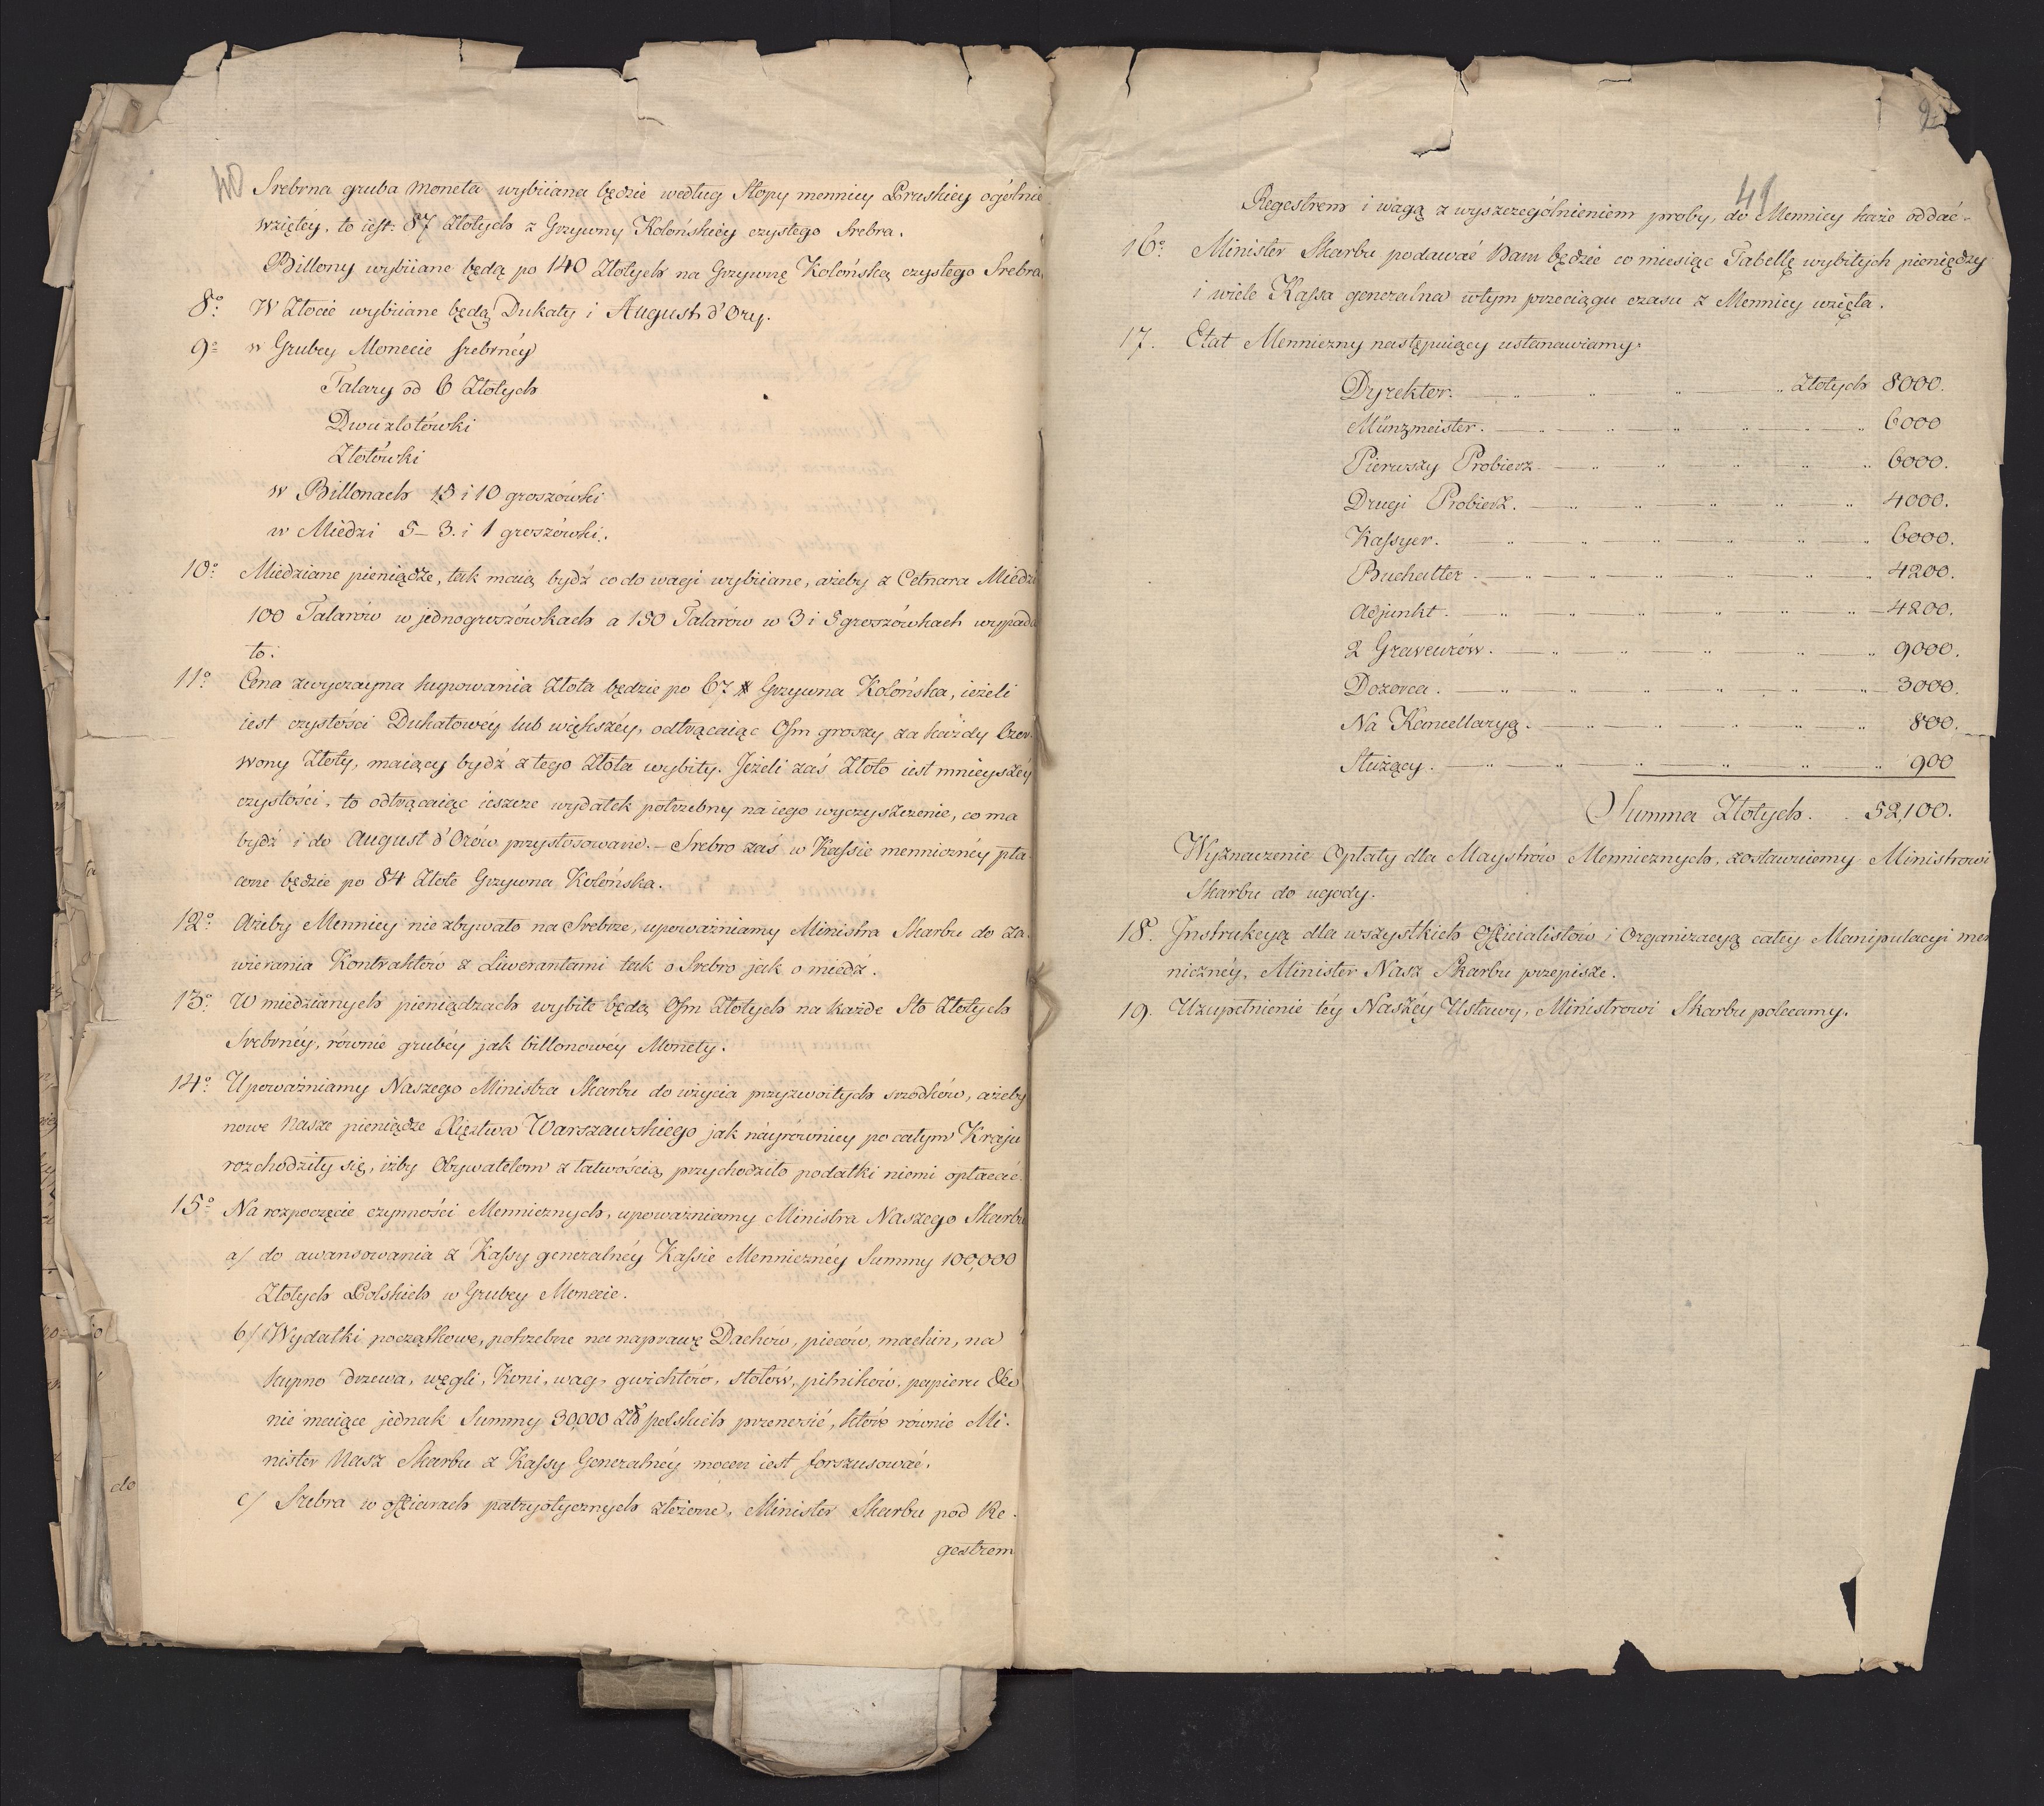 40
Srebrna gruba moneta wybiiana będzie według Stopy mennicy Pruskiey ogólnie
wziętéy, to iest: 87 Złotych z Grzywny Kolońskiéy czystego Srebra.
Billony wybiiane będą po 140 Złotych na Grzywnę Kolońską czystego Srebra
8º W Złocie wybiiane będą Dukaty i August d'Ory.
9º w Grubey Monecie srebrnéy
Talary od 6 Złotych
Dwuzłotówki
Złotówki
w Billonach 15 i 10 groszówki
w Miedzi 5– 3. i 1 groszówki.
10º Miedziane pieniądze, tak maią bydź co do wagi wybiiane, ażeby z Cetnara Miedzi
100 Talarów w jednogroszówkach a 150 Talarów w 3 i 5 groszówkach wypada
ło.
11º Cena zwyczayna kupowania Złota będzie po 67 # Grzywna Kolońska, ieżeli
iest czystości Dukatowéy lub większéy, odtrącaiąc Ośm groszy za każdy Czer
wony Złoty, maiący bydź z tego Złota wybity. Jeżeli zaś Złoto iest mnieyszéy
czystości, to odtrącaiąc ieszcze wydatek potrzebny na iego wyczyszczenie, co ma
bydź i do August d'Orów przystosowano. – Srebro zaś w Kassie mennicznéy pła-
cone będzie po 84 Złote Grzywna Kolońska.
12º Ażeby Mennicy nie zbywało na Srebrze, upoważniamy Ministra Skarbu do za-
wierania Kontraktów z Liwerantami tak o Srebro jak o miedź.
13º W miedzianych pieniądzach wybite będą Ośm Złotych na każde Sto Złotych
Srebrnéy, równie grubéy jak billonowéy Monety.
14º Upoważniamy Naszego Ministra Skarbu do użycia przyzwoitych srodków, ażeby
nowe Nasze pieniądze Xięztwa Warszawskiego jak nayrówniey po całym Kraju
rozchodziły się, iżby Obywatelom z łatwością przychodziło podatki niemi opłacać.
15º Na rozpoczęcie czynności Mennicznych, upoważniamy Ministra Naszego Skarbu
a/ do awansowania z Kassy generalnéy Kassie Mennicznéy Summy 100,000
Złotych Polskich w Grubey Monecie.
b/ Wydatki początkowe, potrzebne na naprawę Dachów, pieców, machin, na
kupno drzewa, węgli, Koni, wag, gwichtów, stołów, pilników, papieru &c
nie maiące jednak Summy 30,000 Zł polskich przenosić, które równie Mi-
nister Nasz Skarbu z Kassy Generalnéy mocen iest forszusować.
c/ Srebra w offiarach patryotycznych złożone, Minister Skarbu pod Re-
gestrem
do
2
41
Regestrem i wagą z wyszczególnieniem proby, do Mennicy każe oddać –
16º Minister Skarbu podawać Nam będzie co miesiąc Tabellę wybitych pieniędzy
i wiele Kassa generalna w tym przeciągu czasu z Mennicy wzięła.
17. Etat Menniczny następuiący ustanawiamy.
Dyrektor. Złotych 8000.
Münzmeister. 6000
Pierwszy Probierz. 6000.
Drugi Probierz. 4000.
Kassyer. 6000.
Buchalter. 4200.
Adjunkt. 4200.
2 Graveurów. 9000.
Dozorca. 3000.
Na Kancellaryą. 800.
Służący. 900
Summa Złotych. 52,100.
Wyznaczenie Opłaty dla Maystrów Mennicznych, zostawuiemy Ministrowi
Skarbu do ugody.
18. Instrukcyą dla wszystkich Officialistów i Organizacyą całey Manipulacyi men
nicznéy, Minister Nasz Skarbu przepisze.
19. Uzupełnienie téy Naszéy Ustawy, Ministrowi Skarbu polecamy.